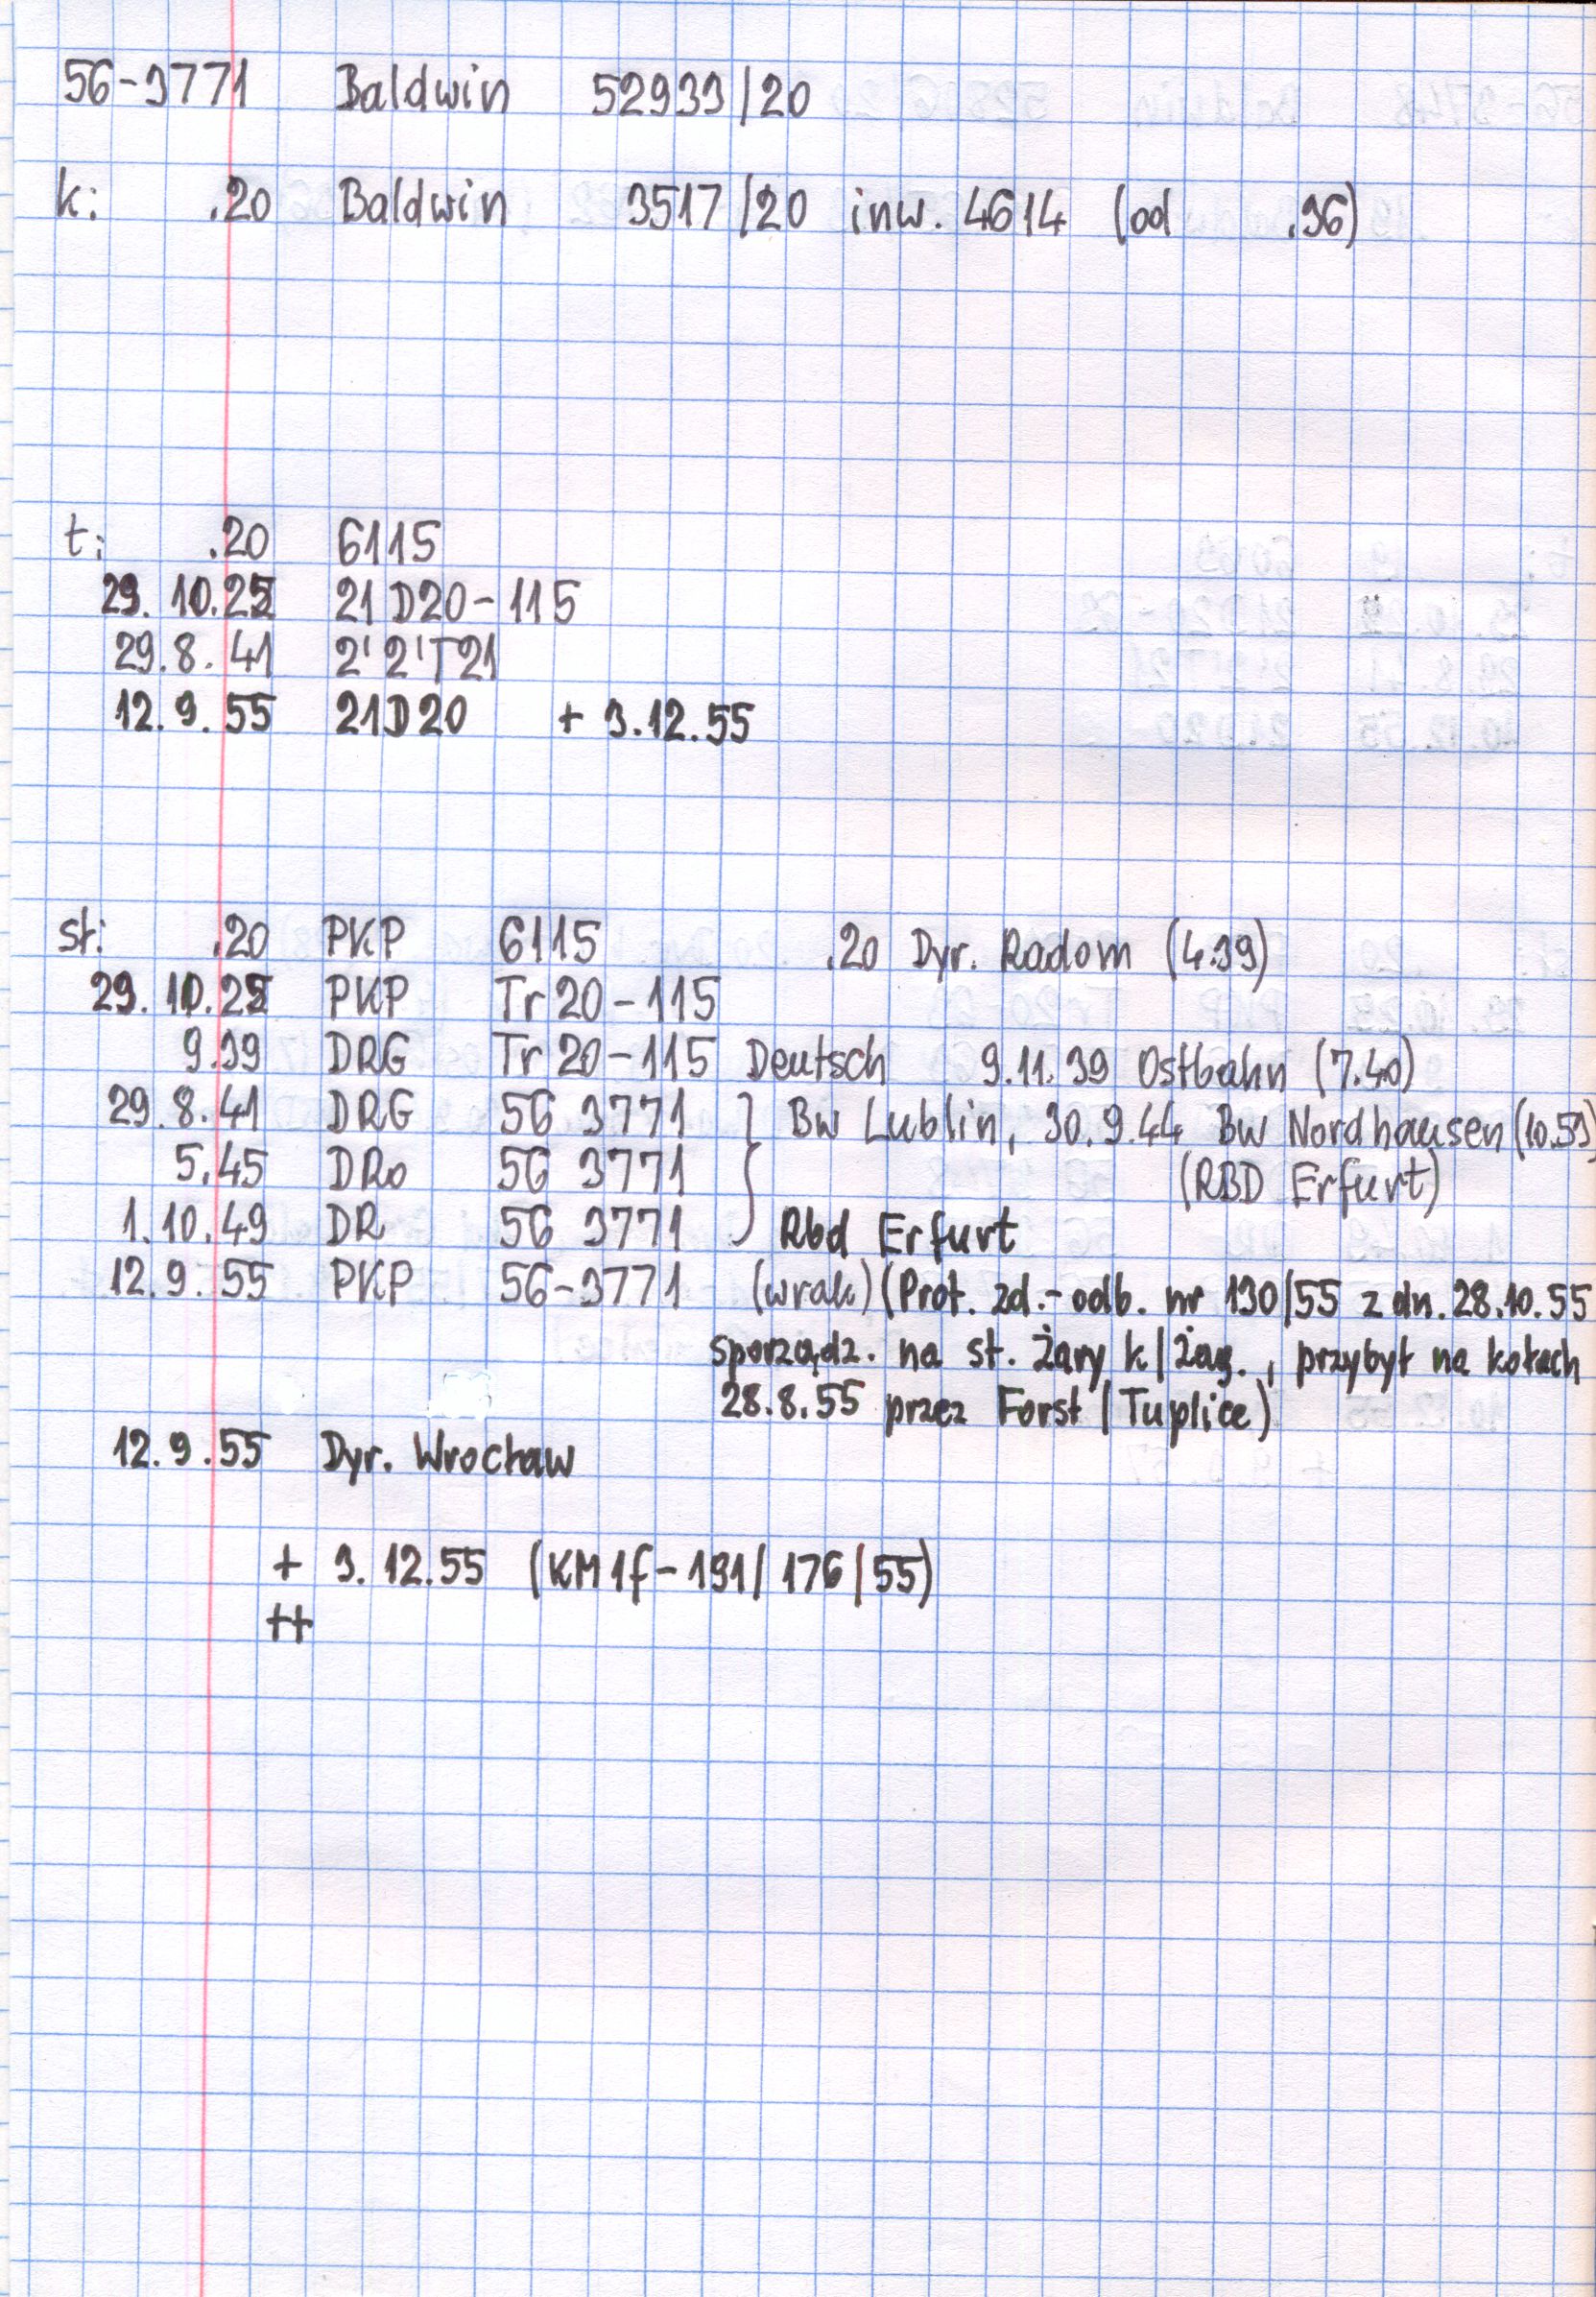 56-3771 Baldwin 52933/20
k: .20 Baldwin 3517/20 inw. 4614 (od .36)
t: .20 6115
29.10.25 21D20-115
29.8.41 2'2'T21
12.9.55 21D20 + 3.12.55
st: .20 PKP 6115 .20 Dyr. Radom (4.39)
29.10.25 PKP Tr20-115
9.39 DRG Tr20-115 Deutsch 9.11.39 Ostbahn (7.40)
29.8.41 DRG 56 3771 } Bw Lublin, 30.9.44 Bw Nordhausen (10.53)
5.45 DRo 56 3771 (RBD Erfurt)
1.10.49 DR 56 3771 Rbd Erfurt
12.9.55 PKP 56-3771 (wrak) (Prot. zd.-odb. nr 130/55 z dn. 28.10.55
sporządz. na st. Żary k/Żag., przybył na kołach
28.8.55 przez Forst/Tuplice)
12.9.55 Dyr. Wrocław
+ 3.12.55 (KM1f-191/176/55)
++